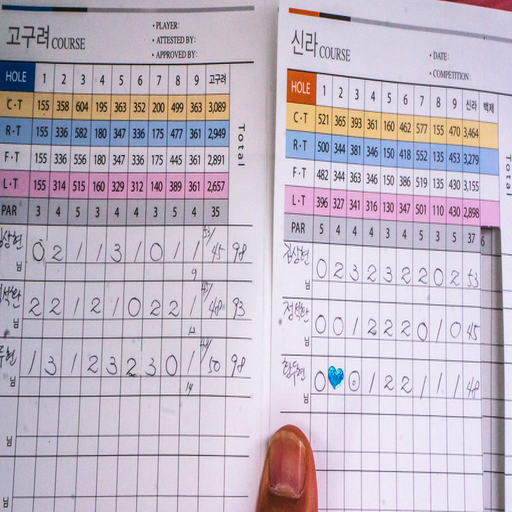 고구려 COURSE
• PLAYER:
• ATTESTED BY:
• APPROVED BY:
HOLE 1 2 3 4 5 6 7 8 9 고구려
C·T 155 358 604 195 363 352 200 499 363 3,089
R·T 155 336 582 180 347 336 175 477 361 2,949
F·T 155 336 556 180 347 336 175 445 361 2,891
L·T 155 314 515 160 329 312 140 389 361 2,657
PAR 3 4 5 3 4 4 3 5 4 35
Total
0 2 1 1 3 1 0 1 1 45 98
님 9
2 2 1 2 1 0 2 2 1 48 93
님
1 3 1 2 3 2 3 0 1 50 98
님 14
님
님
신라 COURSE
• DATE:
• COMPETITION:
HOLE 1 2 3 4 5 6 7 8 9 신라 백제
C·T 521 365 393 361 160 462 577 155 470 3,464
R·T 500 344 381 346 150 418 552 135 453 3,279
F·T 482 344 363 346 150 386 519 135 430 3,155
L·T 396 327 341 316 130 347 501 110 430 2,898
PAR 5 4 4 4 3 4 5 3 5 37 6
Total
김상현 0 2 3 2 3 2 2 0 2 53
님
0 0 1 2 2 2 0 1 0 45
님
0 0 1 2 2 1 1 1 48
님
님